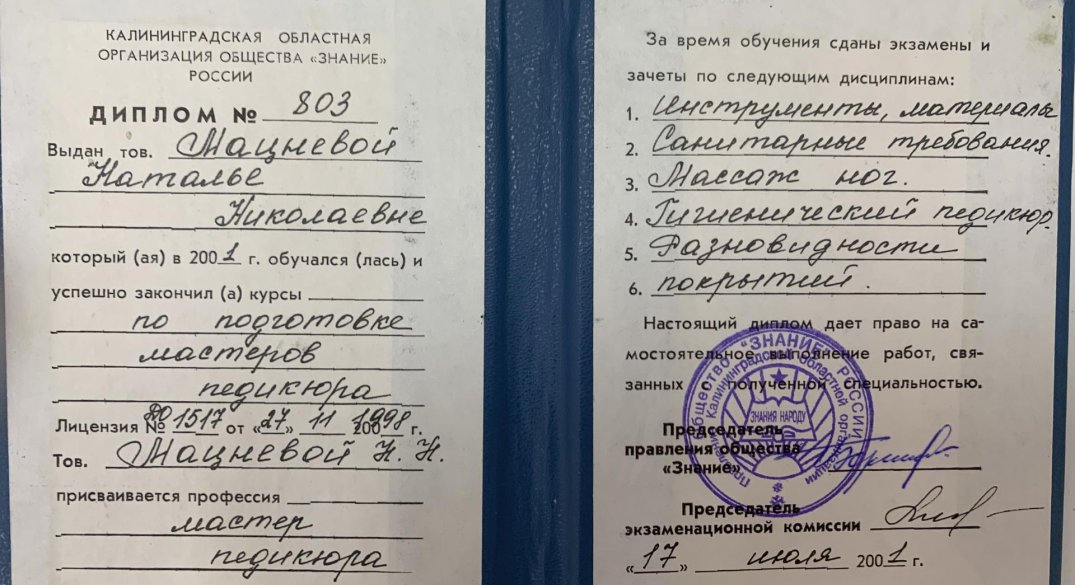 КАЛИНИНГРАДСКАЯ ОБЛАСТНАЯ
ОРГАНИЗАЦИЯ ОБЩЕСТВА «ЗНАНИЕ»
РОССИИ
ДИПЛОМ № 803
Выдан тов. Мацневой
Наталье
Николаевне
который (ая) в 2001 г. обучался (лась) и
успешно закончил (а) курсы
по подготовке
мастеров
педикюра
Лицензия № 1517 от «27» 11 1998 г.
Тов. Мацневой Н. Н.
присваивается профессия
мастер
педикюра
За время обучения сданы экзамены и
зачеты по следующим дисциплинам:
1. Инструменты, материалы
2. Санитарные требования.
3. Массаж ног.
4. Гигиенический педикюр.
5. Разновидности
6. покрытий.
Настоящий диплом дает право на са-
мостоятельное выполнение работ, свя-
занных с полученной специальностью.
Общество "ЗНАНИЕ" РОССИИ
Правление Калининградской областной организации
ЗНАНИЯ НАРОДУ
Председатель
правления общества
«Знание»
Председатель
экзаменационной комиссии
«17» июля 2001 г.